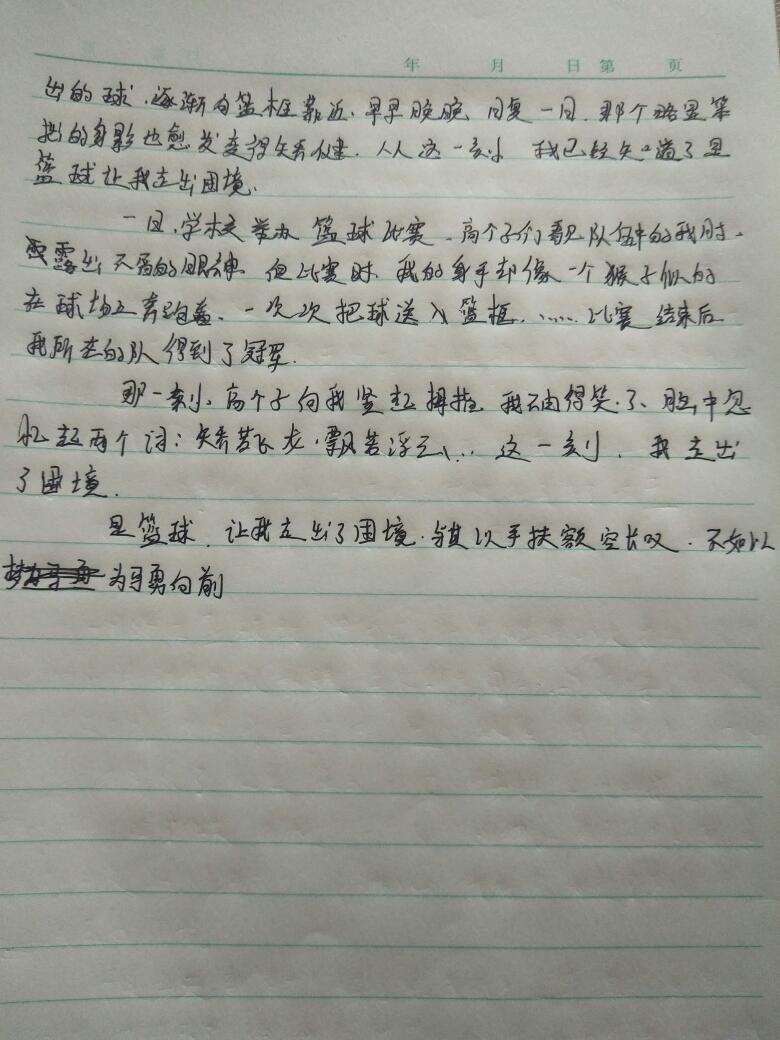 年 月 日 第 页
出的球,逐渐向篮框靠近,早早晚晚,日复一日,那个略显笨
拙的身影也愈发变得矫健,从这一刻,我已经知道了是
篮球让我走出困境.
一日,学校举办篮球比赛,高个子们看见队伍中的我时,
露出不屑的眼神,但比赛时,我的身手却像一个猴子似的
在球场上奔跑着,一次次把球送入篮框,……比赛结束后
我所在的队得到了冠军.
那一刻,高个子向我竖起拇指,我不由得笑了,脑中忽
忆起两个词:矫若飞龙,飘若浮云,…这一刻,我走出
了困境.
是篮球,让我走出了困境,与其以手扶额空长叹,不如以
为马勇向前